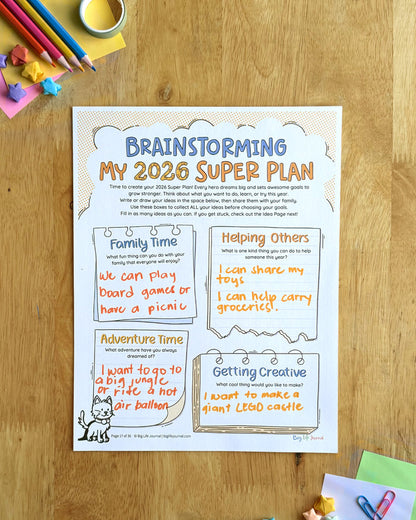 BRAINSTORMING
MY 2026 SUPER PLAN
Time to create your 2026 Super Plan! Every hero dreams big and sets awesome goals to
grow stronger. Think about what you want to do, learn, or try this year.
Write or draw your ideas in the space below, then share them with your family.
Use these boxes to collect ALL your ideas before choosing your goals.
Fill in as many ideas as you can. If you get stuck, check out the Idea Page next!
Family Time
What fun thing can you do with your
family that everyone will enjoy?
We can play
board games or
have a picnic
Helping Others
What is one kind thing you can do to help
someone this year?
I can share my
toys
I can help carry
groceries.
Adventure Time
What adventure have you always
dreamed of?
I want to go to
a big jungle
or ride a hot
air balloon
Getting Creative
What cool thing would you like to make?
I want to make a
giant LEGO castle
Page 21 of 36 © Big Life Journal | biglifejournal.com
Big Life Journal